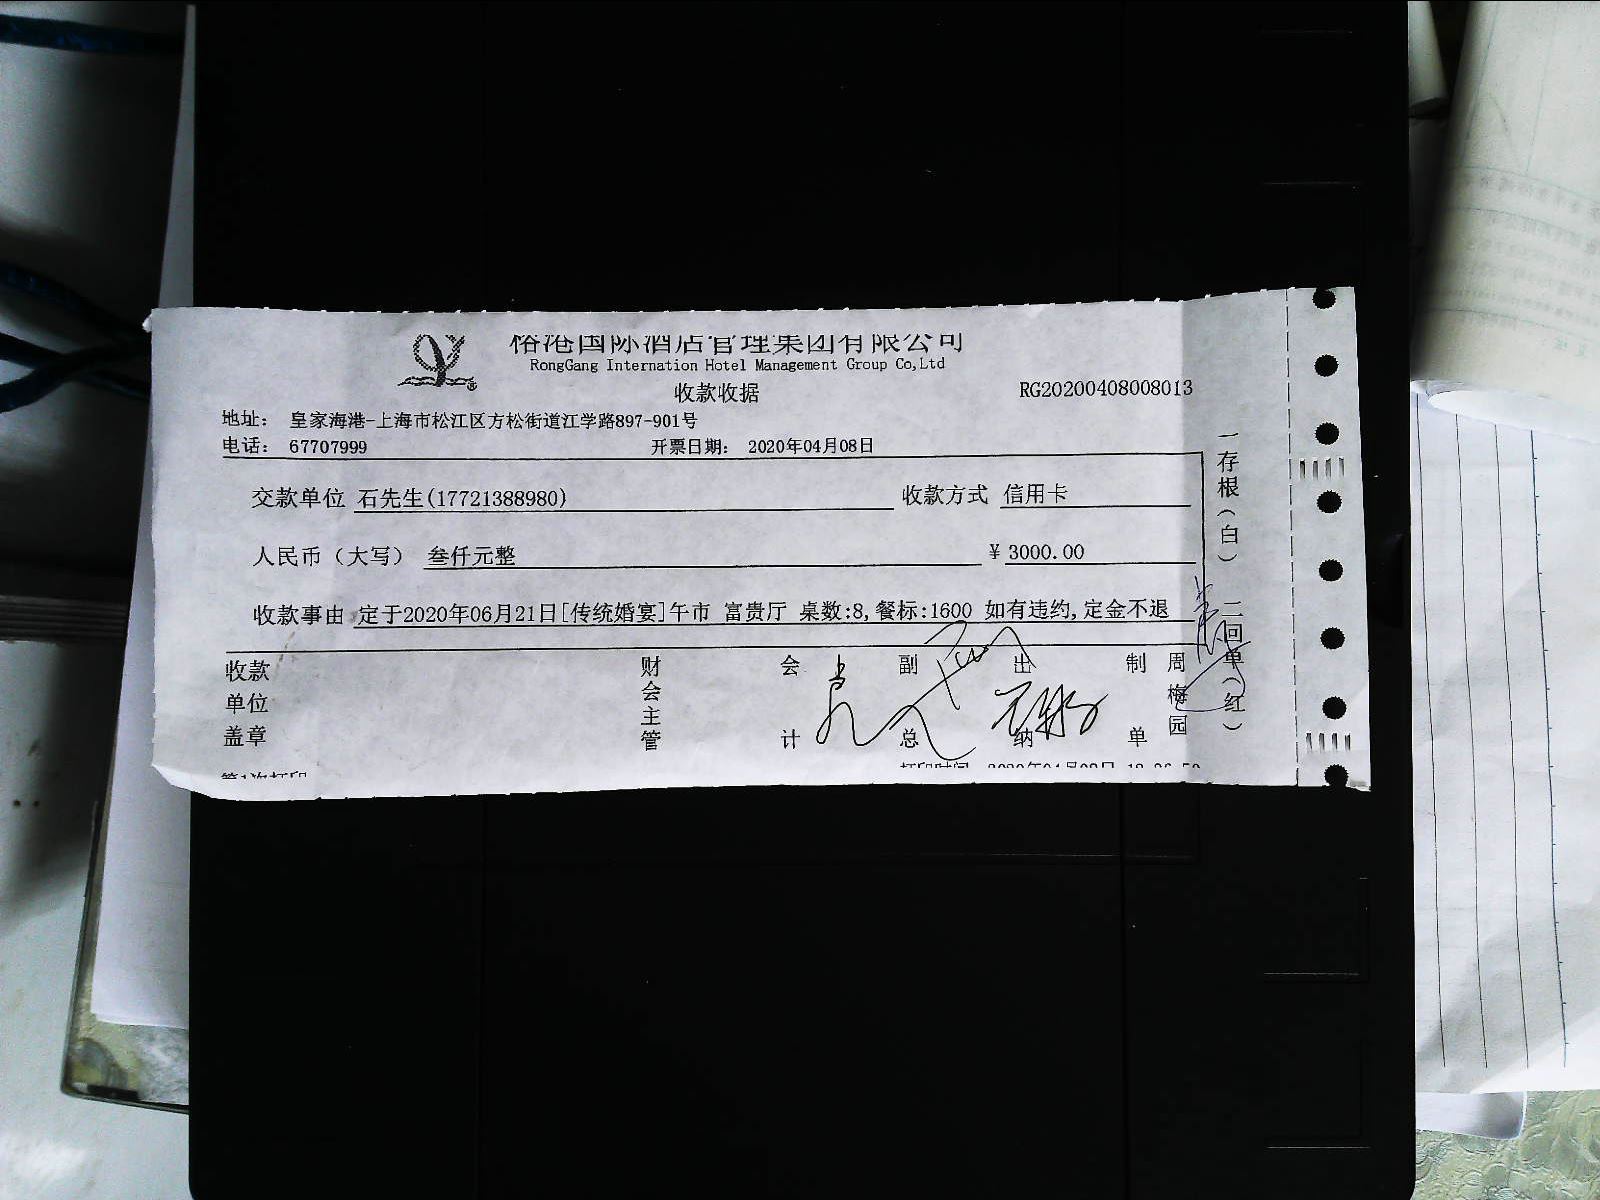 榕港国际酒店管理集团有限公司
RongGang Internation Hotel Management Group Co,Ltd
收款收据
RG20200408008013
地址： 皇家海港-上海市松江区方松街道江学路897-901号
电话： 67707999 开票日期： 2020年04月08日
交款单位 石先生(17721388980) 收款方式 信用卡
人民币（大写） 叁仟元整 ¥ 3000.00
收款事由 定于2020年06月21日[传统婚宴]午市 富贵厅 桌数:8,餐标:1600 如有违约,定金不退
收款单位盖章 财会主管 会计 副总 出纳 制单 周梅园
第1次打印
一存根（白） 二回单（红）